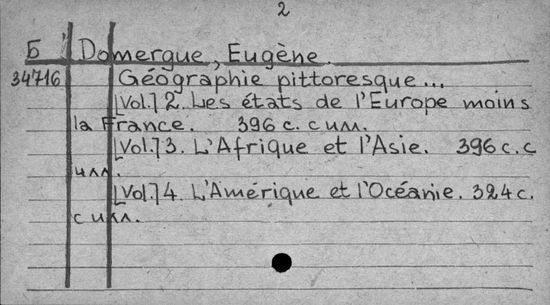 2
Б Domergue, Eugène.
34716 Géographie pittoresque...
[Vol.] 2. Les états de l'Europe moins
la France. 396 с. с илл.
[Vol.] 3. L'Afrique et l'Asie. 396 с. с
илл.
[Vol.] 4. L'Amérique et l'Océanie. 324 с.
с илл.